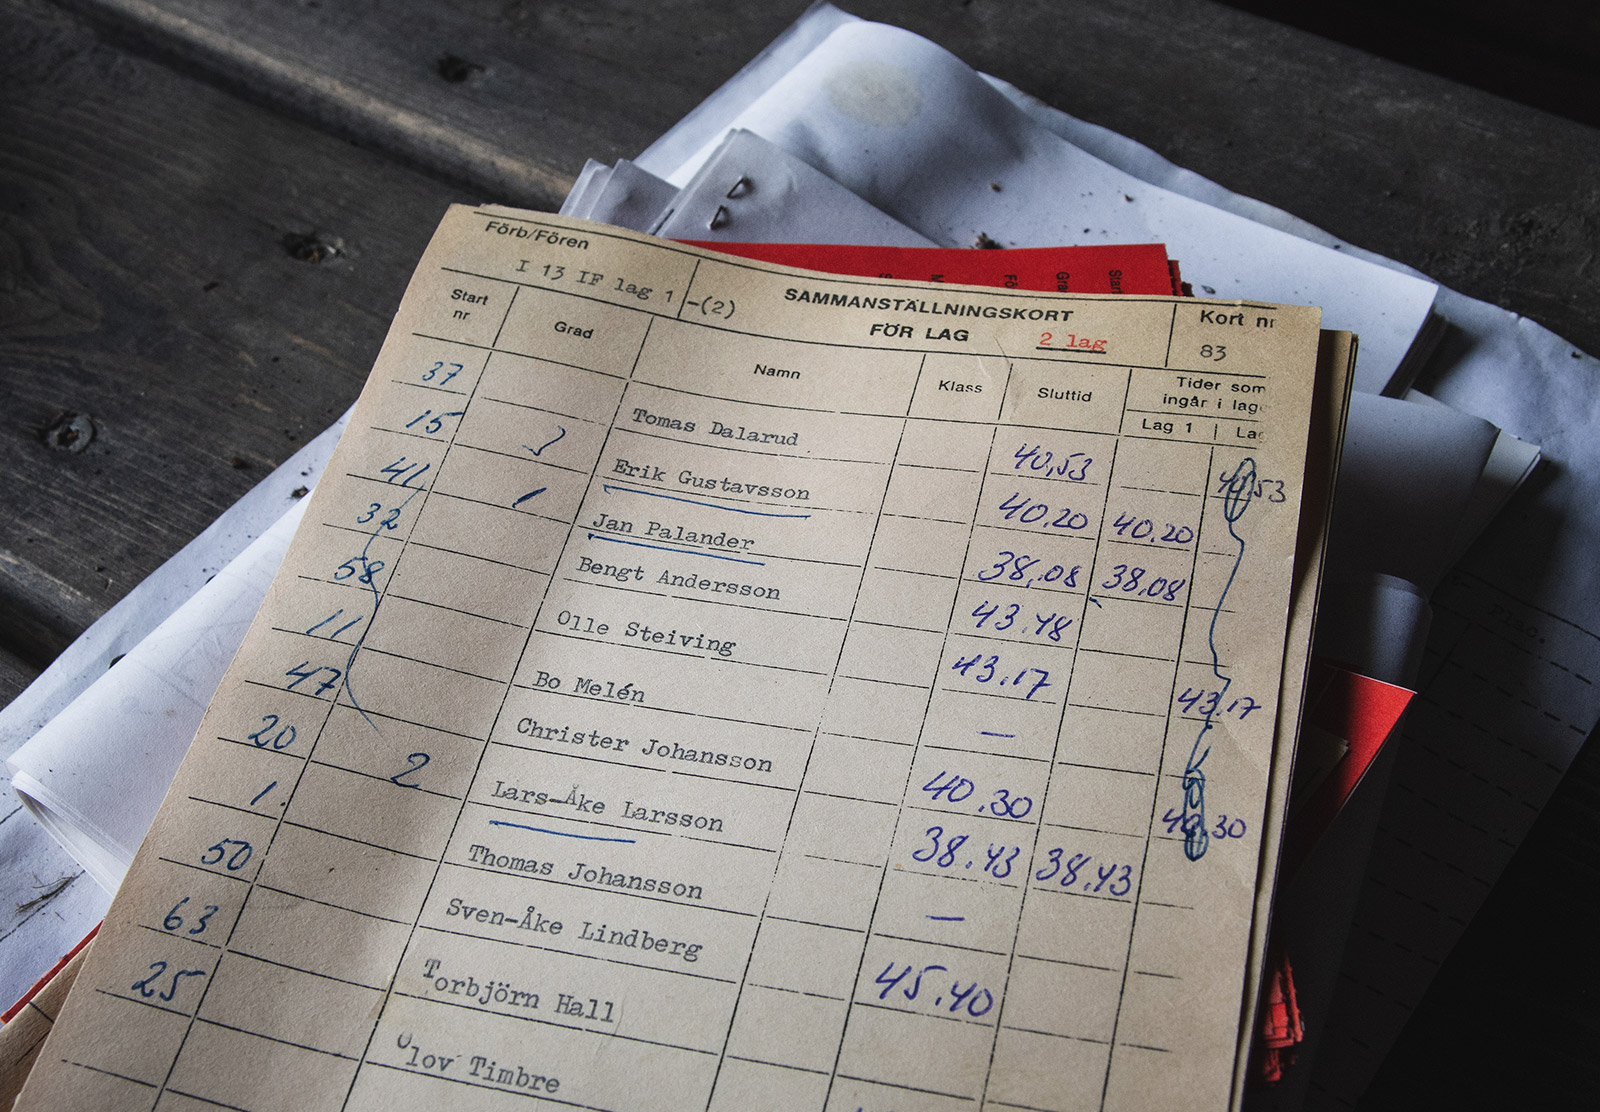 Förb/Fören
I 13 IF lag 1 -(2)
SAMMANSTÄLLNINGSKORT
FÖR LAG 2 lag
Kort nr
83
Start nr Grad Namn Klass Sluttid Tider som ingår i lag
Lag 1 La
37 Tomas Dalarud 40,53 40,53
15 3 Erik Gustavsson 40.20 40.20
41 1 Jan Palander 38,08 38,08
32 Bengt Andersson 43.48
58 Olle Steiving 43.17 43.17
11 Bo Melén —
47 Christer Johansson 40.30 40.30
20 2 Lars-Åke Larsson 38.43 38.43
1. Thomas Johansson —
50 Sven-Åke Lindberg 45.40
63 Torbjörn Hall
25 Olov Timbre